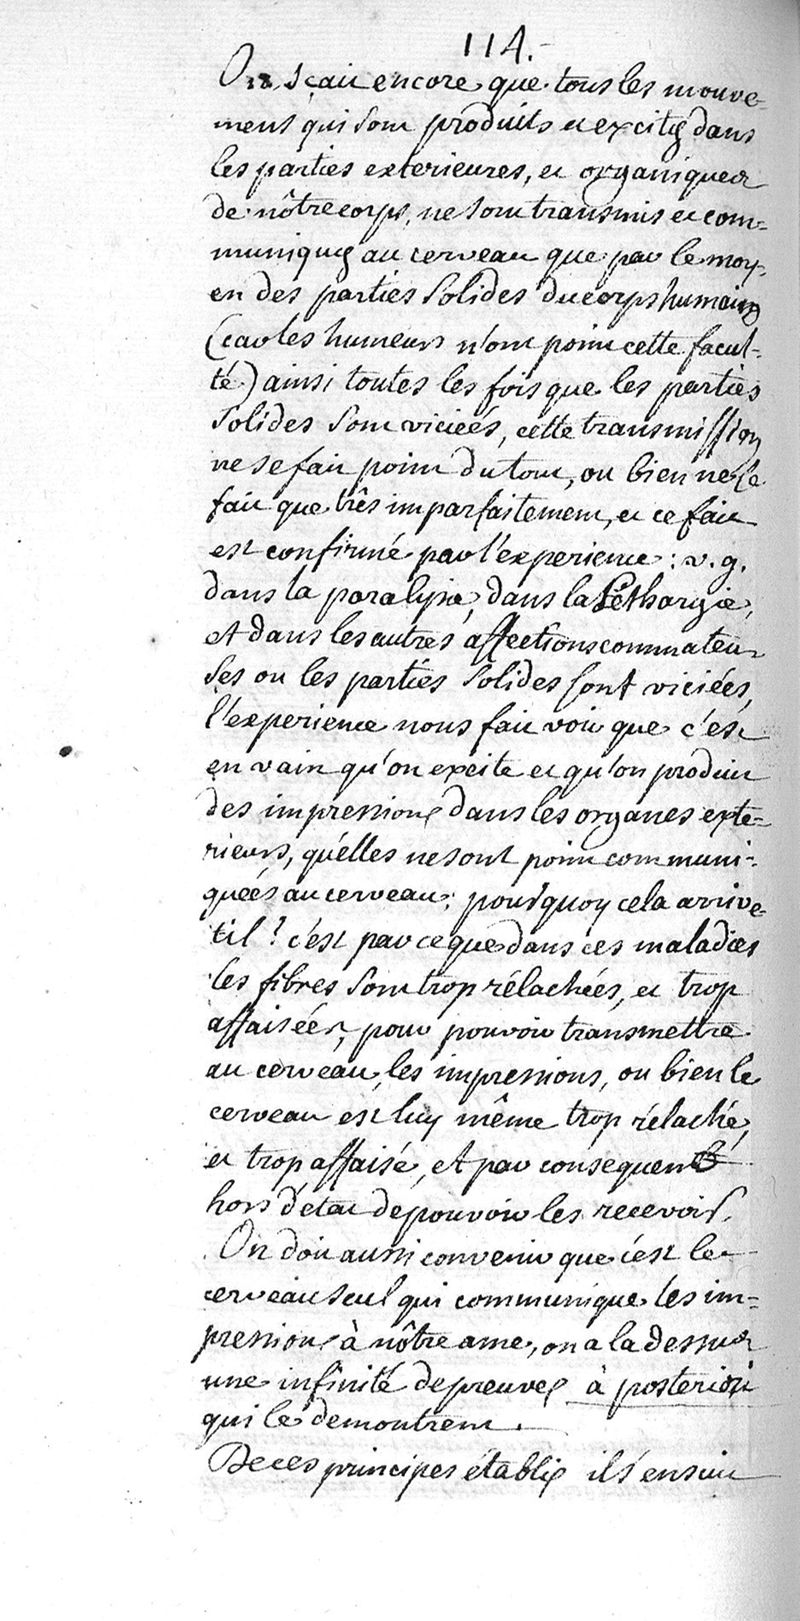 114.
On sçait encore que tous les mouve-
mens qui sont produits et excités dans
les parties exterieures, et organiques
de nôtre corps, ne sont transmis et com-
muniqués au cerveau que par le moy-
en des parties solides du corps humain
(car les humeurs n'ont point cette facul-
té) ainsi toutes les fois que les parties
solides sont viciéés, cette transmission
ne se fait point du tout, ou bien ne se
fait que três imparfaitement, et ce fait
est confirmé par l'experience : v. g.
dans la paralysie, dans la Léthargie,
et dans les autres affections commateu-
ses ou les parties solides sont viciées,
l'experience nous fait voir que c'est
en vain qu'on excite et qu'on produit
des impressions dans les organes exte-
rieurs, qu'elles ne sont point communi-
quéés au cerveau; pourquoy cela arrive-
til? c'est par ce que dans ces maladies
les fibres sont trop rélachées, et trop
affaiséés, pour pouvoir transmettre
au cerveau, les impressions, ou bien le
cerveau est luy même trop rélaché,
et trop affaisé, et par consequent
hors d'état de pouvoir les recevoir.
On doit aussi convenir que c'est le
cerveau seul qui communique les im-
pressions à nôtre ame, on a la dessus
une infinité de preuves à posteriori
qui le demontrent.
De ces principes établis il s'ensuit